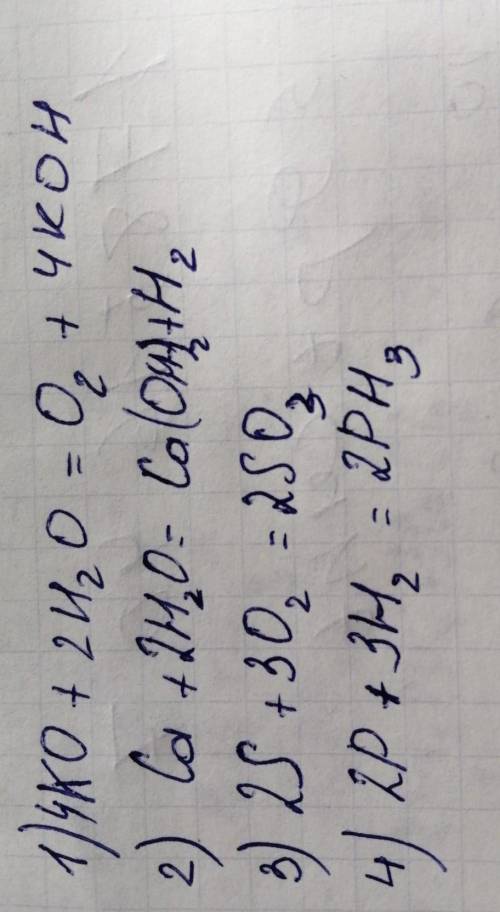 1) 4KO + 2H₂O = O₂ + 4KOH
2) Ca + 2H₂O = Ca(OH)₂ + H₂
3) 2S + 3O₂ = 2SO₃
4) 2P + 3H₂ = 2PH₃